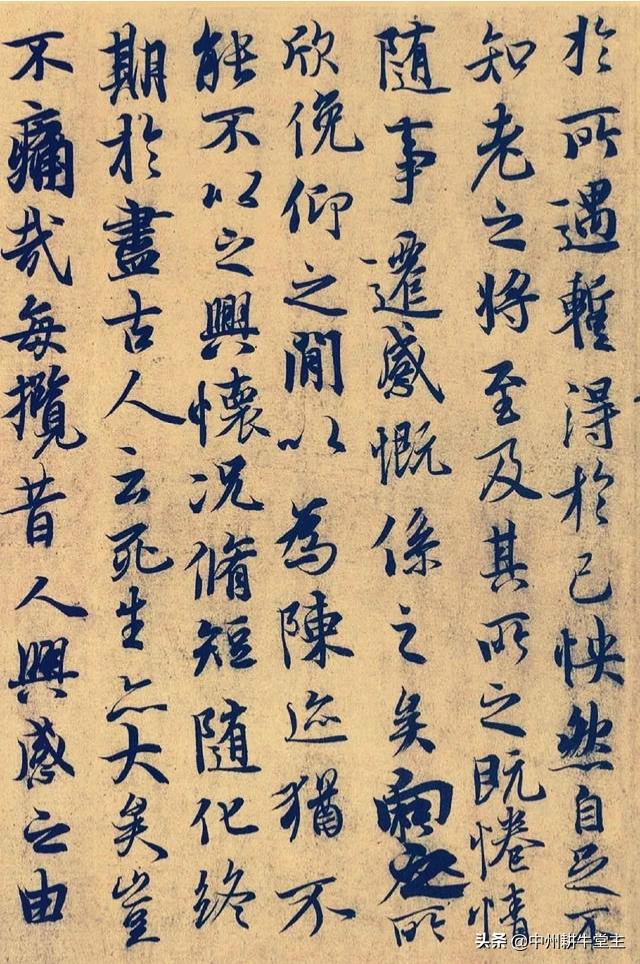 於所遇暫得於己怏然自足不
知老之將至及其所之既惓情
隨事遷感慨係之矣向之所
欣俛仰之閒以為陳迹猶不
能不以之興懷況脩短隨化終
期於盡古人云死生亦大矣豈
不痛哉每攬昔人興感之由
头条 @中州耕牛堂主